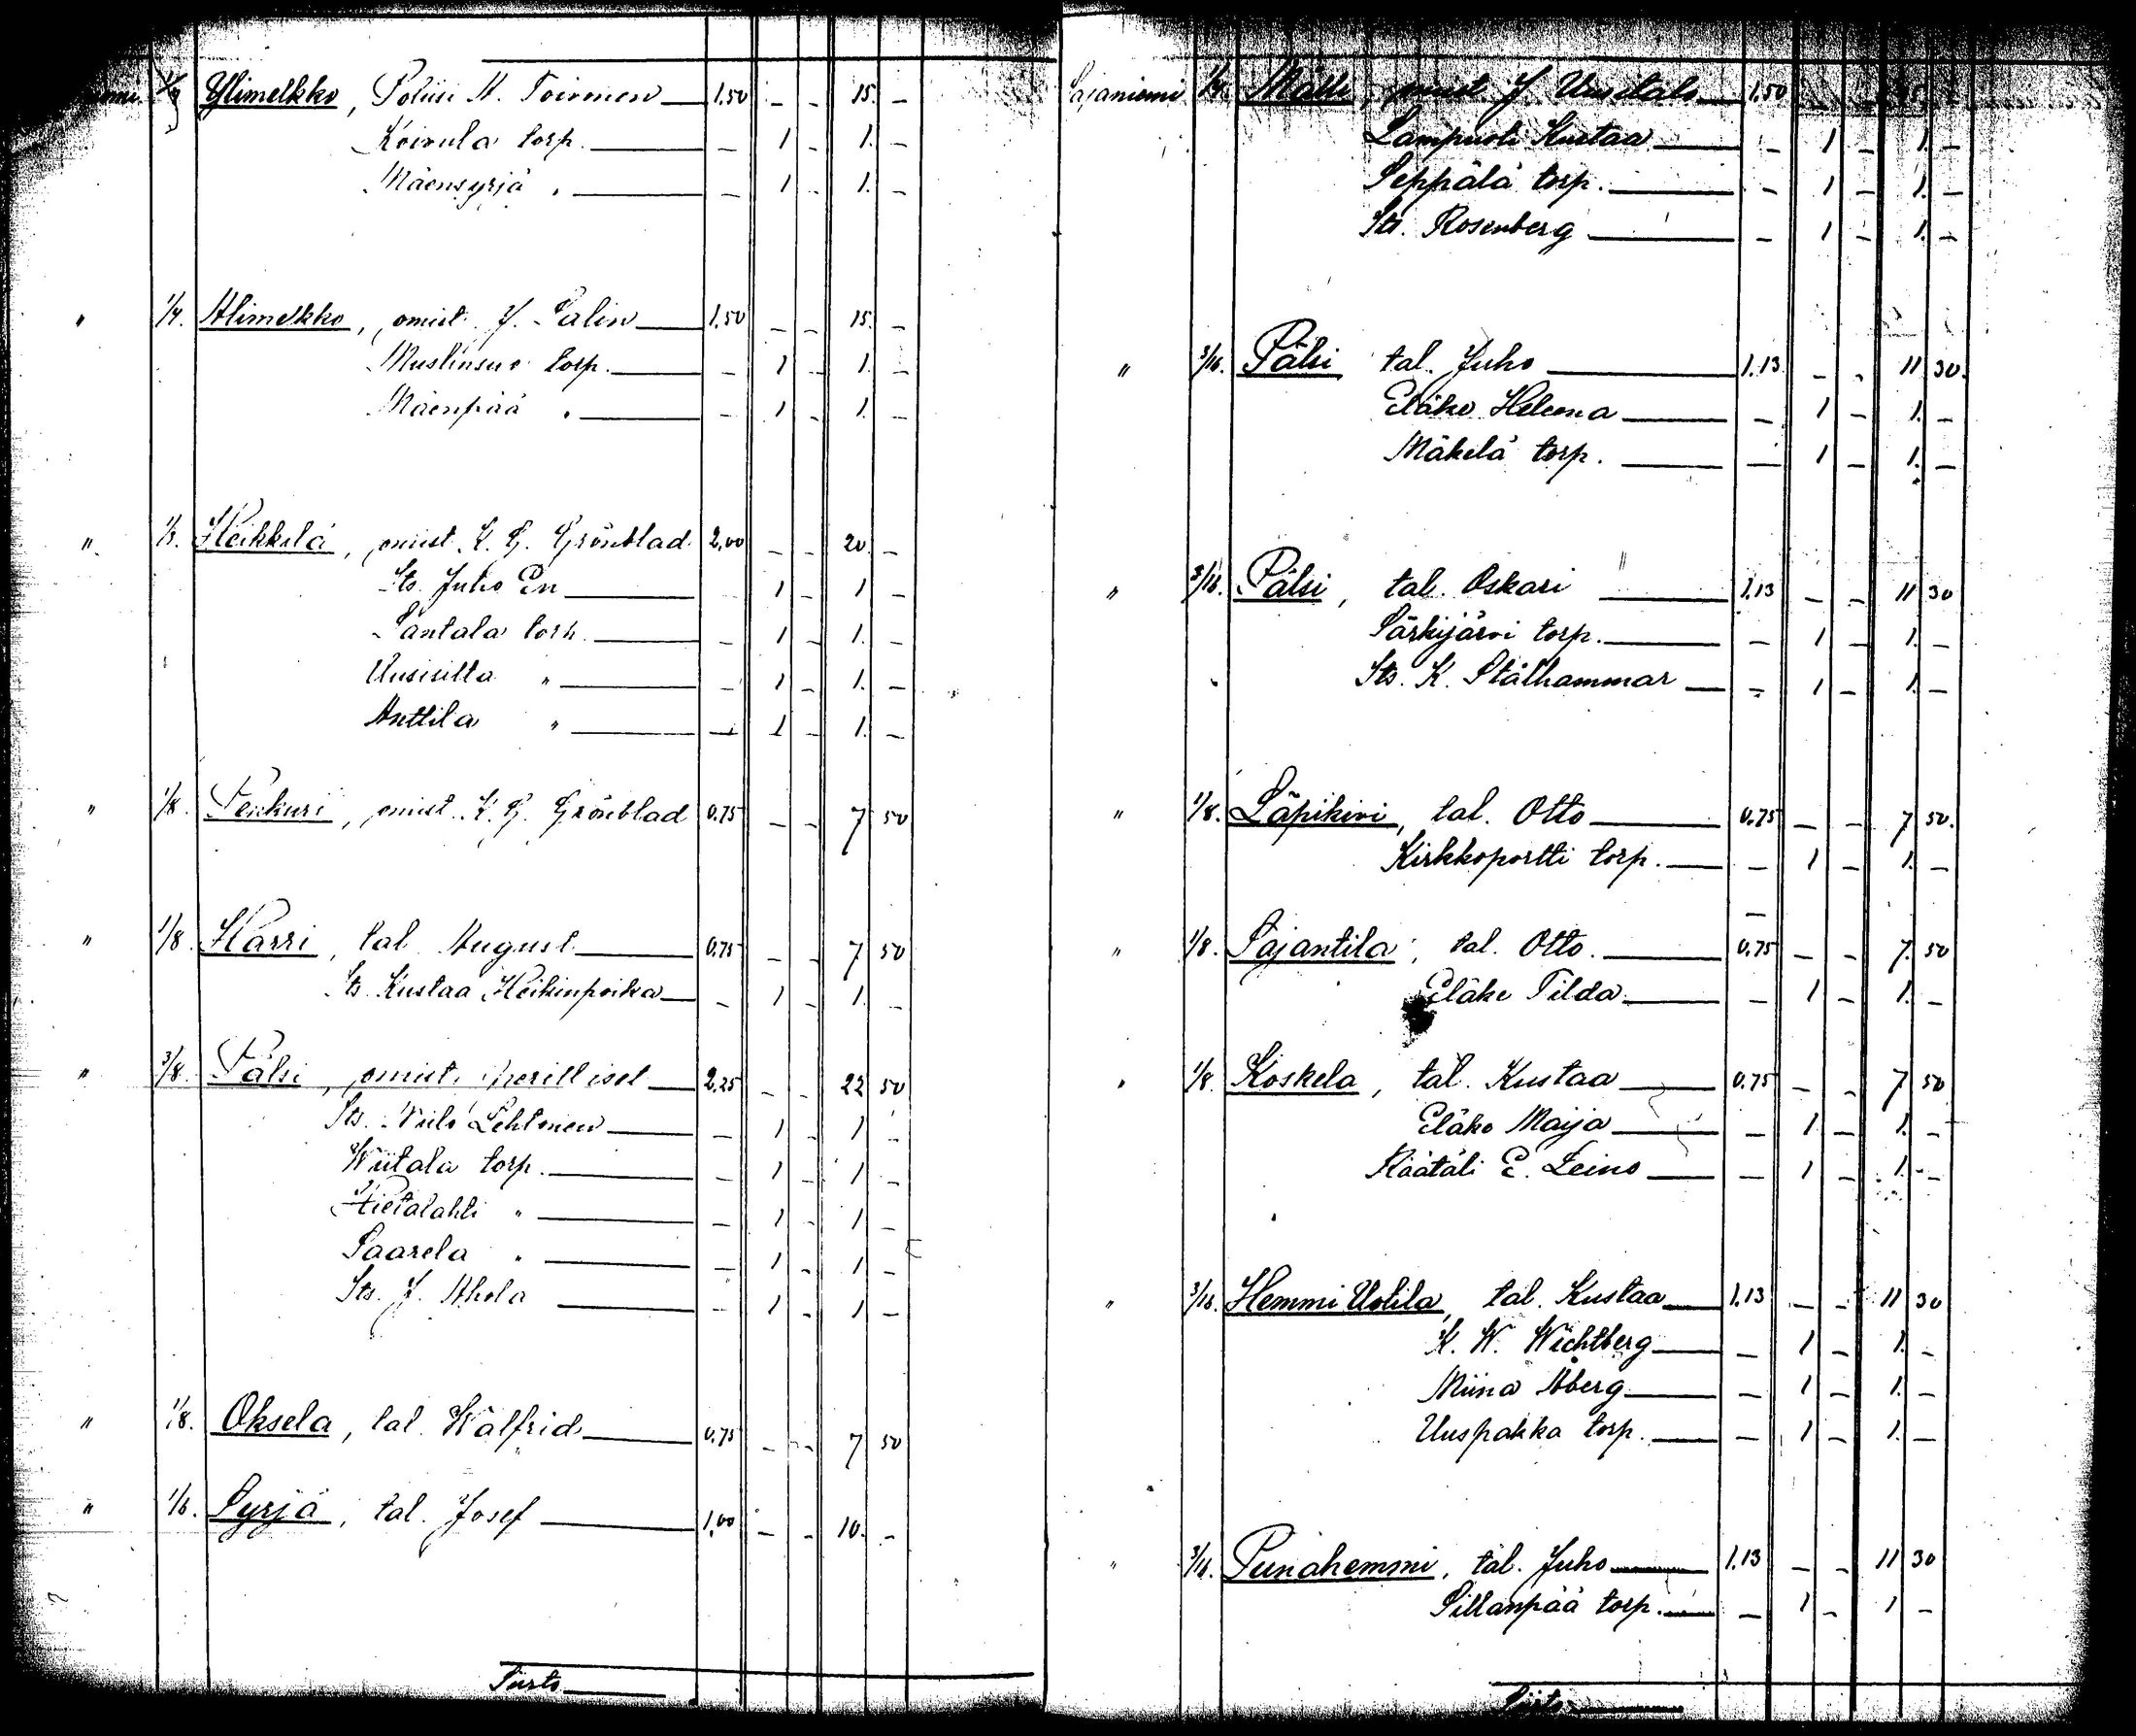 1/4 Ylimelkko, Poliisi A. Toivonen 1,50 – – 15. –
Koivula torp. – 1 – 1. –
Mäensyrjä „ – 1 – 1. –
„ 1/4. Alimelkko, omist. J. Salin 1,50 – – 15. –
Muslinsuo torp. – 1 – 1. –
Mäenpää „ – 1 – 1. –
„ 1/3. Heikkilä, omist. K. G. Grönblad 2,00 – – 20. –
Its. Juho En – 1 – 1 –
Santala torp. – 1 – 1. –
Uusisilta „ – 1 – 1. –
Anttila „ – 1 – 1. –
„ 1/8. Penkuri, omist. K. G. Grönblad 0,75 – – 7 50
„ 1/8. Harri, tal. August 0,75 – – 7 50
Its. Kustaa Heikinpoika – 1 – 1. –
„ 3/8. Pälsi, omist. perilliset 2,25 – – 22 50
Its. Viilo Lehtonen – 1 – 1 –
Wiitala torp. – 1 – 1 –
Hietalahti „ – 1 – 1 –
Saarela „ – 1 – 1 –
Its. J. Ahola – 1 – 1 –
„ 1/8. Oksela, tal. Walfrid 0,75 – – 7 50
„ 1/6. Syrjä, tal. Josef 1,00 – – 10. –
Siirto
Sajaniemi 1/4. Mälli, omist. J. Uusitalo 1,50
Lampuoti Kustaa – 1 – 1. –
Seppälä torp. – 1 – 1. –
Its. Rosenberg – 1 – 1. –
„ 3/16. Pälsi tal. Juho 1,13 – – 11 30.
Eläke Helena – 1 – 1. –
Mäkelä torp. – 1 – 1. –
„ 3/16. Pälsi, tal. Oskari 1,13 – – 11 30
Särkijärvi torp. – 1 – 1. –
Its. K. Stålhammar – 1 – 1. –
„ 1/8. Läpikivi, tal. Otto 0,75 – – 7 50.
Kirkkoportti torp. – 1 – 1. –
„ 1/8. Sajantila, tal. Otto. 0,75 – – 7. 50
Eläke Tilda – 1 – 1. –
„ 1/8. Koskela, tal. Kustaa 0,75 – – 7 50
Eläke Maija – 1 – 1. –
Räätäli E. Leino – 1 – 1. –
„ 3/16. Hemmi Uotila, tal. Kustaa 1,13 – – 11 30
K. W. Wichtberg – 1 – 1. –
Miina Åberg – 1 – 1. –
Uuspakka torp. – 1 – 1. –
„ 3/16. Punahemmi, tal. Juho 1,13 – – 11 30
Sillanpää torp. – 1 – 1 –
Siirto